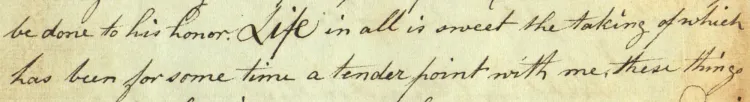 be done to his honor. Life in all is sweet the taking of which
has been for some time a tender point with me, these things